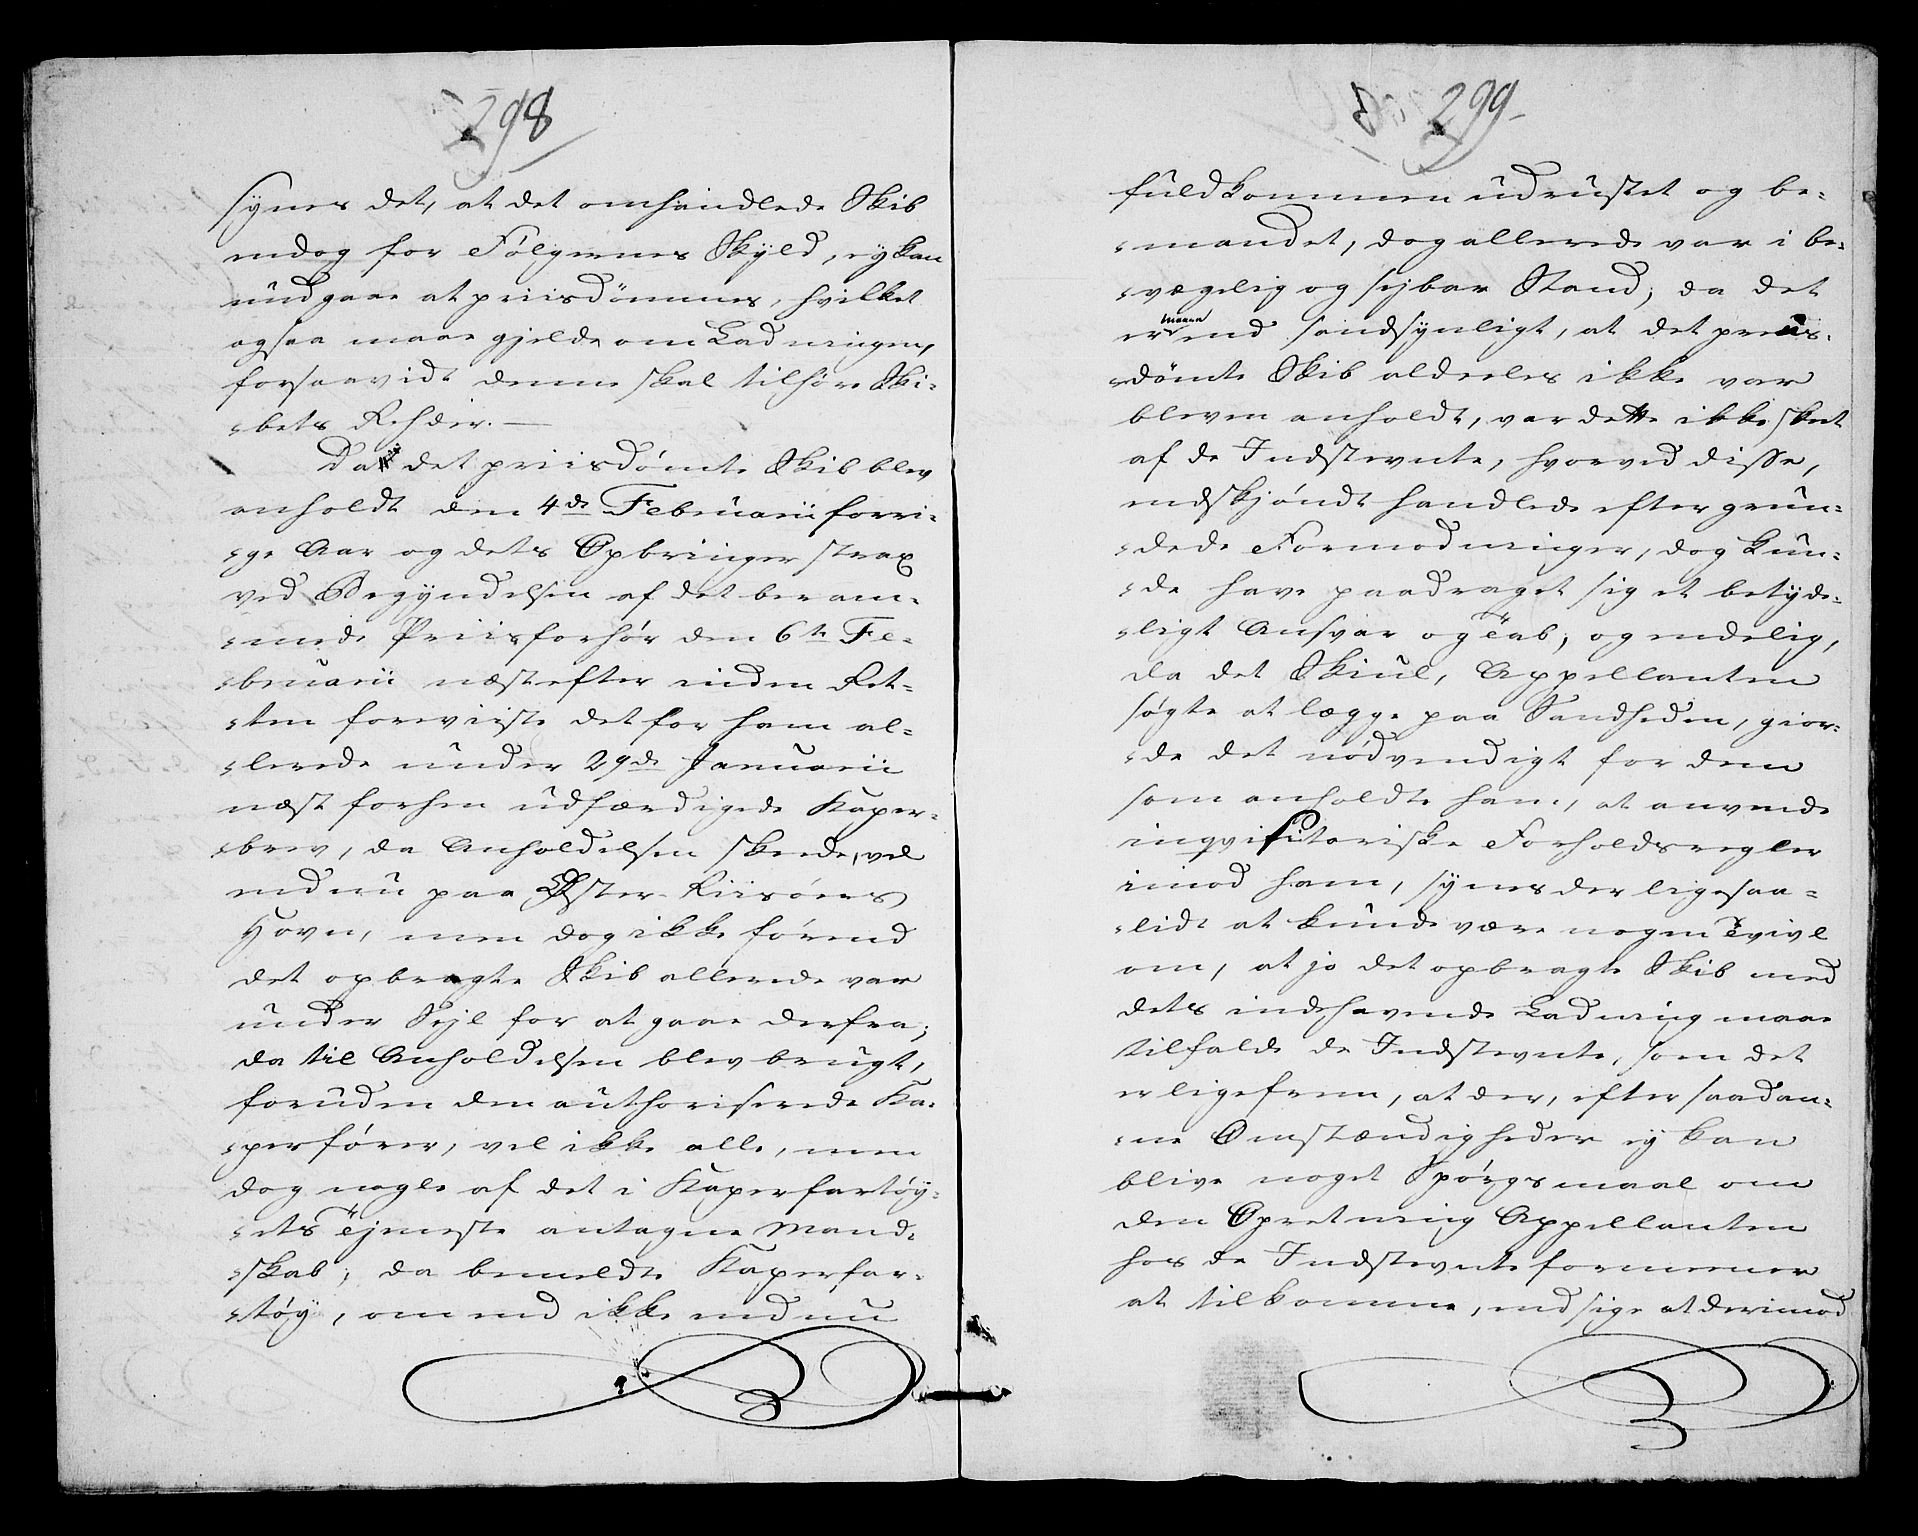 298
synes det, at det omhandlede Skib
endog for Følgernes Skyld, ey kan
undgaae at priisdömmes, hvilket
ogsaa maae gjelde om Ladningen,
forsaavidt denne skal tilhøre Ski-
-bets Rehder. —
Da det priisdömte Skib blev
anholdt den 4de Februarii forri-
-ge Aar og dets Opbringer strax
ved Begyndelsen af det beram-
-mede Priisforhør den 6te Fe-
-bruarii næstefter inden Ret-
-ten foreviiste det for ham al-
-lerede under 29de Januarii
næst forhen udfærdigede Kaper-
-brev, da Anholdelsen skeede, vel
endnu paa Öster-Riisöers
Havn, men dog ikke førend
det opbragte Skib allerede var
under Sejl for at gaae derfra;
da til Anholdelsen blev brugt,
foruden den authoriserede Ka-
-perfører, vel ikke alle, men
dog nogle af det i Kaperfartøy-
-ets Tjeneste antagne Mand-
-skab; da bemeldte Kaperfar-
-tøy, om end ikke endnu
299
fuldkommen udrustet og be-
-mandet, dog allerede var i be-
-vægelig og sejbar Stand; da det
er meere end sandsynligt, at det priis-
-dömte Skib aldeeles ikke var
bleven anholdt, var dette ikke skeet
af de Indstevnte, hvorved disse,
endskjøndt handlede efter grun-
-dede Formodninger, dog kun-
-de have paadraget sig et betyde-
-ligt Ansvar og Tab; og endelig,
da det Skiul, Appellanten
søgte at lægge paa Sandheden, gior-
-de det nødvendigt for dem
som anholdte ham, at anvende
inqvisitoriske Forholdsregler
imod ham, synes der ligesaa-
-lidt at kunde være nogen Tvivl
om, at jo det opbragte Skib med
dets indehavende Ladning maae
tilfalde de Indstevnte, som det
er ligefrem, at der, efter saadan-
-ne Omstændigheder ey kan
blive noget Spørgsmaal om
den Opretning Appellanten
hos de Indstevnte formener
at tilkomme, end sige at derimod